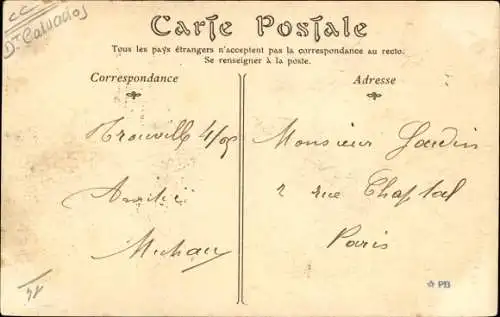 CC
Dt Calvados
Carte Postale
Tous les pays étrangers n'acceptent pas la correspondance au recto.
Se renseigner à la poste.
Correspondance
Trouville 4/05
Amitié
Michau
Adresse
Monsieur Gaudin
2 rue Chaptal
Paris
PB